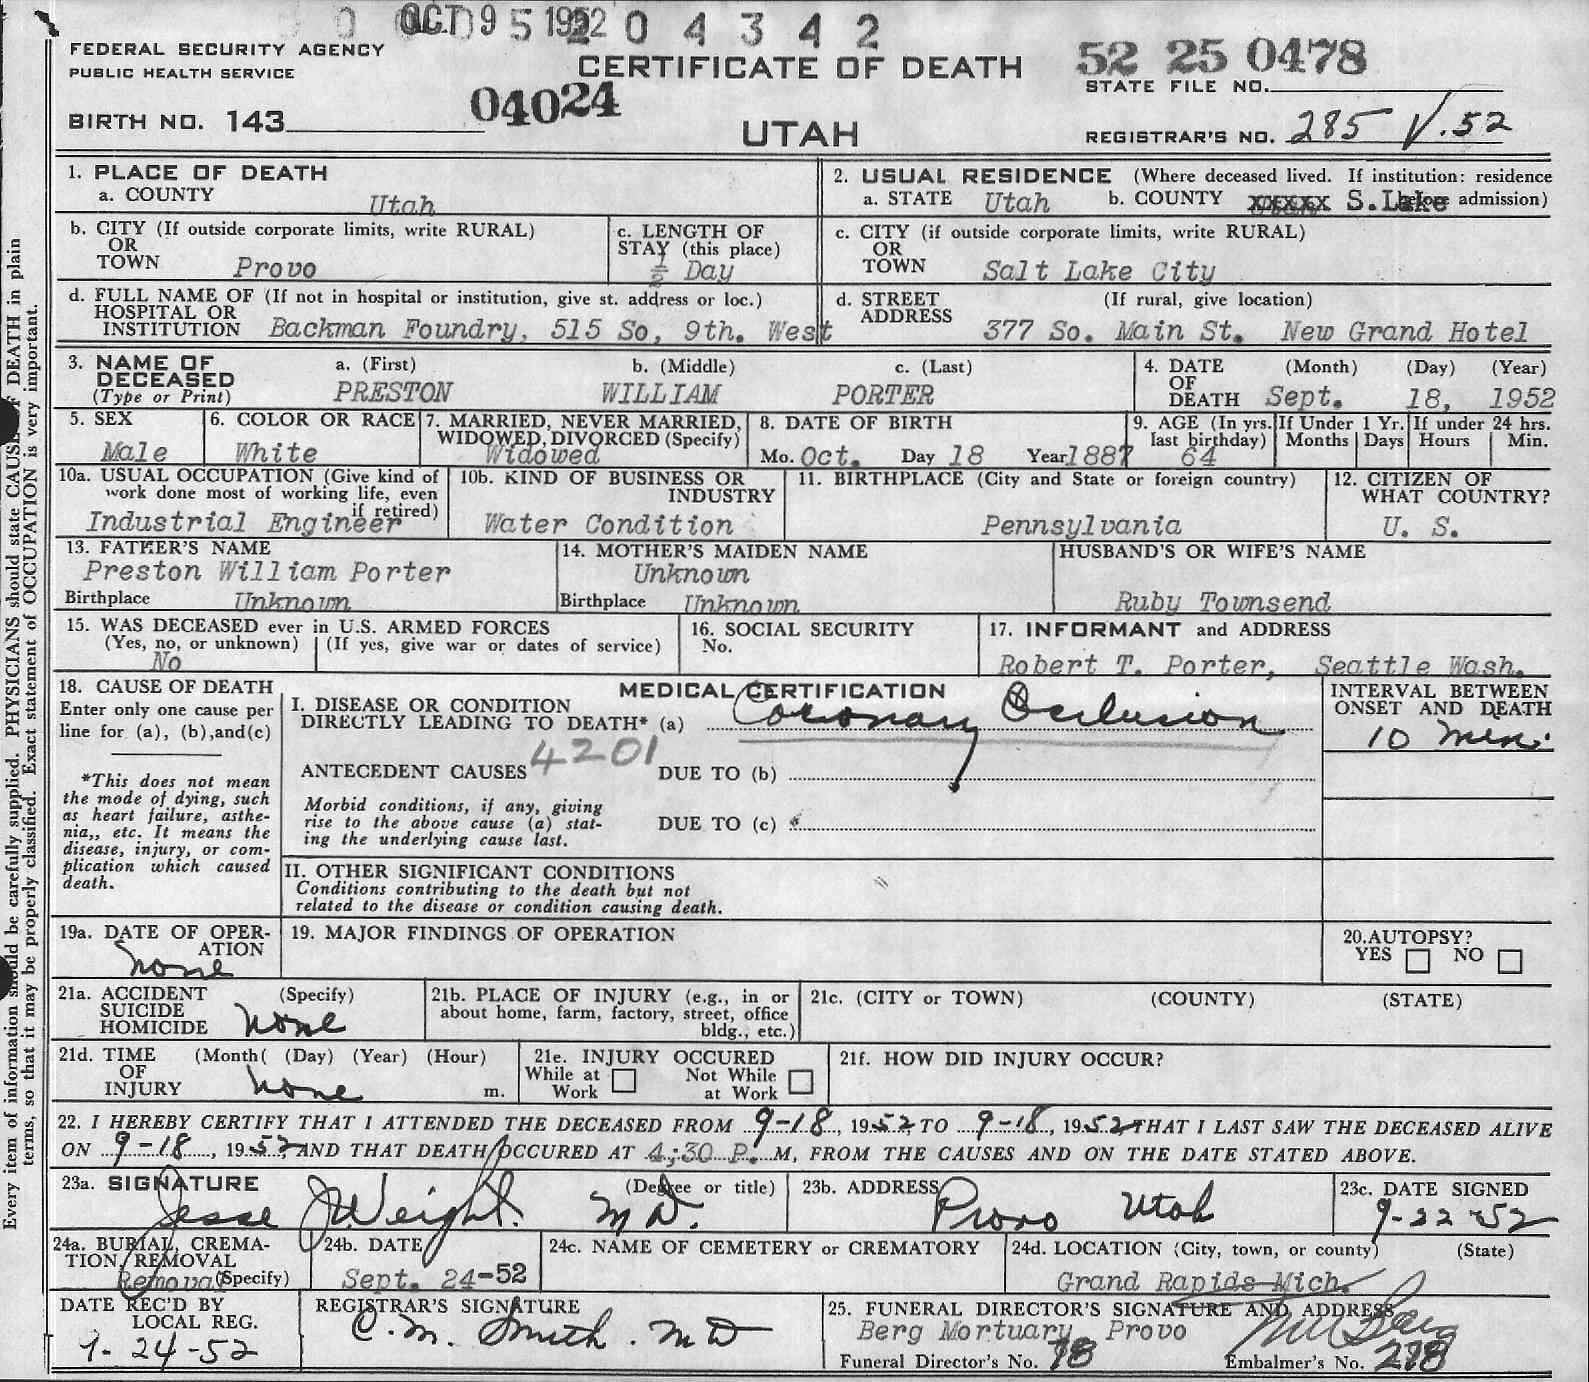 OCT 9 1952 0 4 3 4 2
FEDERAL SECURITY AGENCY
PUBLIC HEALTH SERVICE
CERTIFICATE OF DEATH
52 25 0478
STATE FILE NO.
BIRTH NO. 143
04024
UTAH
REGISTRAR'S NO. 285 V.52
1. PLACE OF DEATH
a. COUNTY Utah
2. USUAL RESIDENCE (Where deceased lived. If institution: residence before admission)
a. STATE Utah b. COUNTY S. Lake
b. CITY (If outside corporate limits, write RURAL)
OR
TOWN Provo
c. LENGTH OF
STAY (this place)
½ Day
c. CITY (if outside corporate limits, write RURAL)
OR
TOWN Salt Lake City
d. FULL NAME OF (If not in hospital or institution, give st. address or loc.)
HOSPITAL OR
INSTITUTION Backman Foundry, 515 So, 9th. West
d. STREET (If rural, give location)
ADDRESS 377 So. Main St. New Grand Hotel
3. NAME OF
DECEASED
(Type or Print)
a. (First) b. (Middle) c. (Last)
PRESTON WILLIAM PORTER
4. DATE (Month) (Day) (Year)
OF
DEATH Sept. 18, 1952
5. SEX
Male
6. COLOR OR RACE
White
7. MARRIED, NEVER MARRIED,
WIDOWED, DIVORCED (Specify)
Widowed
8. DATE OF BIRTH
Mo. Oct. Day 18 Year 1887
9. AGE (In yrs. last birthday)
64
If Under 1 Yr.
Months Days
If under 24 hrs.
Hours Min.
10a. USUAL OCCUPATION (Give kind of
work done most of working life, even
if retired)
Industrial Engineer
10b. KIND OF BUSINESS OR
INDUSTRY
Water Condition
11. BIRTHPLACE (City and State or foreign country)
Pennsylvania
12. CITIZEN OF
WHAT COUNTRY?
U. S.
13. FATHER'S NAME
Preston William Porter
Birthplace Unknown
14. MOTHER'S MAIDEN NAME
Unknown
Birthplace Unknown
HUSBAND'S OR WIFE'S NAME
Ruby Townsend
15. WAS DECEASED ever in U.S. ARMED FORCES
(Yes, no, or unknown) (If yes, give war or dates of service)
No
16. SOCIAL SECURITY
No.
17. INFORMANT and ADDRESS
Robert T. Porter, Seattle Wash.
18. CAUSE OF DEATH
Enter only one cause per
line for (a), (b),and(c)
*This does not mean
the mode of dying, such
as heart failure, asthe-
nia,, etc. It means the
disease, injury, or com-
plication which caused
death.
MEDICAL CERTIFICATION
I. DISEASE OR CONDITION
DIRECTLY LEADING TO DEATH* (a) Coronary Occlusion
4201
ANTECEDENT CAUSES DUE TO (b)
Morbid conditions, if any, giving
rise to the above cause (a) stat-
ing the underlying cause last.
DUE TO (c)
INTERVAL BETWEEN
ONSET AND DEATH
10 min.
II. OTHER SIGNIFICANT CONDITIONS
Conditions contributing to the death but not
related to the disease or condition causing death.
19a. DATE OF OPER-
ATION
none
19. MAJOR FINDINGS OF OPERATION
20.AUTOPSY?
YES NO
21a. ACCIDENT (Specify)
SUICIDE
HOMICIDE none
21b. PLACE OF INJURY (e.g., in or
about home, farm, factory, street, office
bldg., etc.)
21c. (CITY or TOWN) (COUNTY) (STATE)
21d. TIME (Month( (Day) (Year) (Hour)
OF
INJURY none m.
21e. INJURY OCCURED
While at Work Not While at Work
21f. HOW DID INJURY OCCUR?
22. I HEREBY CERTIFY THAT I ATTENDED THE DECEASED FROM 9-18, 1952, TO 9-18, 1952 THAT I LAST SAW THE DECEASED ALIVE
ON 9-18, 1952, AND THAT DEATH OCCURED AT 4:30 P. M, FROM THE CAUSES AND ON THE DATE STATED ABOVE.
23a. SIGNATURE (Degree or title)
Jesse J Weight. M D.
23b. ADDRESS
Provo Utah
23c. DATE SIGNED
9-22-52
24a. BURIAL, CREMA-
TION, REMOVAL
(Specify)
Removal
24b. DATE
Sept. 24-52
24c. NAME OF CEMETERY or CREMATORY
24d. LOCATION (City, town, or county) (State)
Grand Rapids Mich.
DATE REC'D BY
LOCAL REG.
9-24-52
REGISTRAR'S SIGNATURE
C. M. Smith. M D
25. FUNERAL DIRECTOR'S SIGNATURE AND ADDRESS
Berg Mortuary Provo
Funeral Director's No. 78 Embalmer's No.
Every item of information should be carefully supplied. PHYSICIANS should state CAUSE OF DEATH in plain
terms, so that it may be properly classified. Exact statement of OCCUPATION is very important.